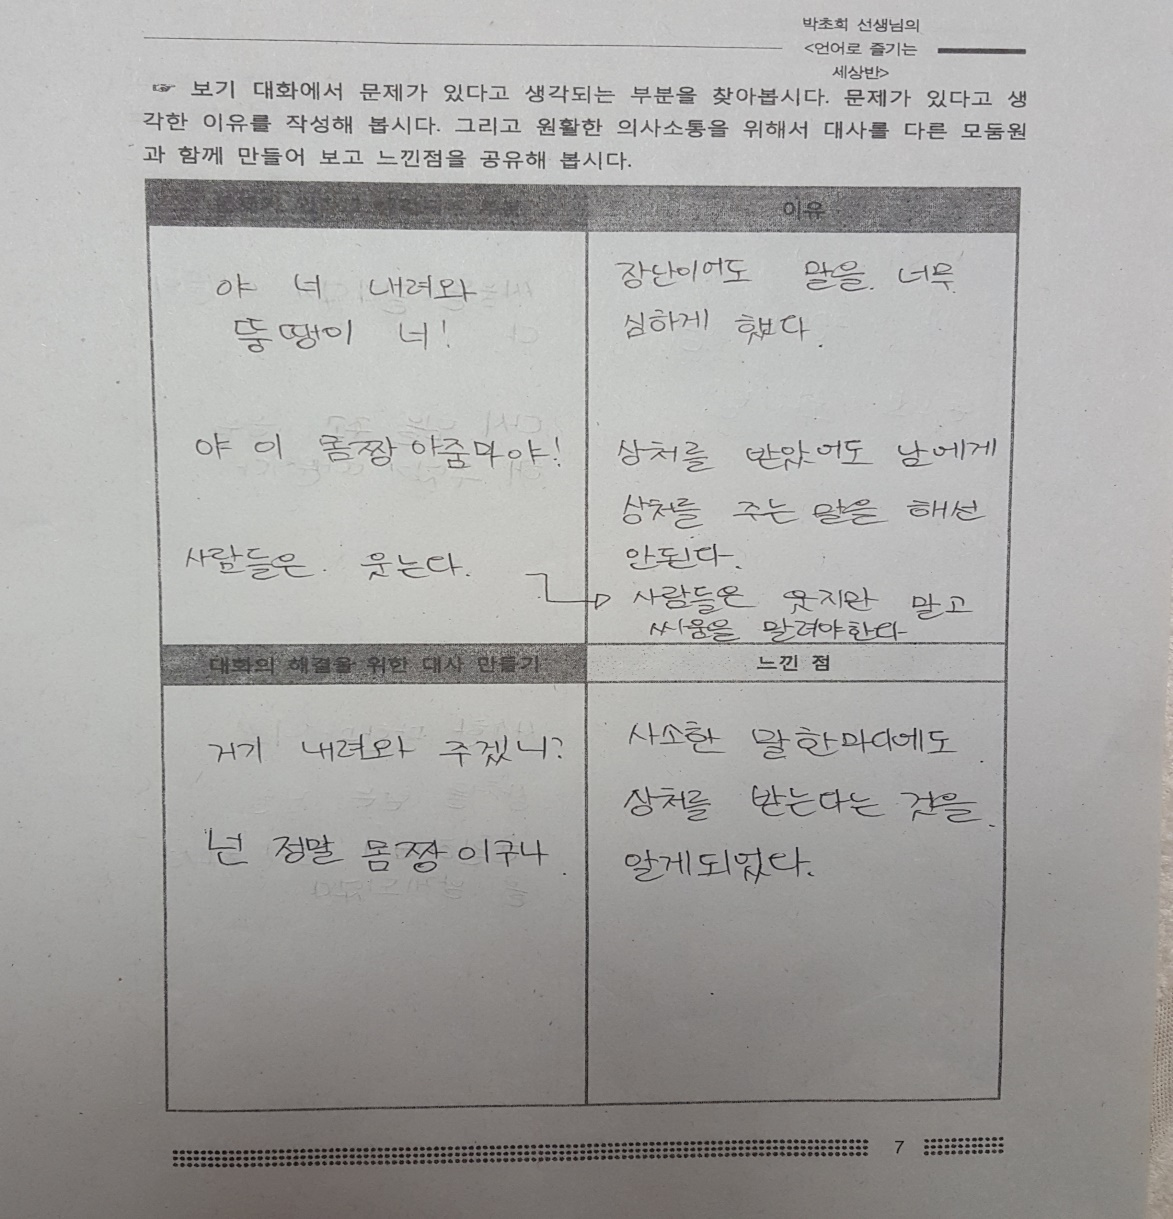 박초희 선생님의
<언어로 즐기는
세상반>
☞ 보기 대화에서 문제가 있다고 생각되는 부분을 찾아봅시다. 문제가 있다고 생
각한 이유를 작성해 봅시다. 그리고 원활한 의사소통을 위해서 대사를 다른 모둠원
과 함께 만들어 보고 느낀점을 공유해 봅시다.
이유
야 너 내려와
뚱땡이 너!
야 이 몸짱 아줌마야!
사람들은. 웃는다.
장난이어도 말을 너무
심하게 했다.
상처를 받았어도 남에게
상처를 주는 말을 해선
안된다.
사람들은 웃지만 말고
싸움을 말려야한다
대화의 해결을 위한 대사 만들기
느낀 점
거기 내려와 주겠니?
넌 정말 몸짱이구나.
사소한 말한마디에도
상처를 받는다는 것을
알게되었다.
7